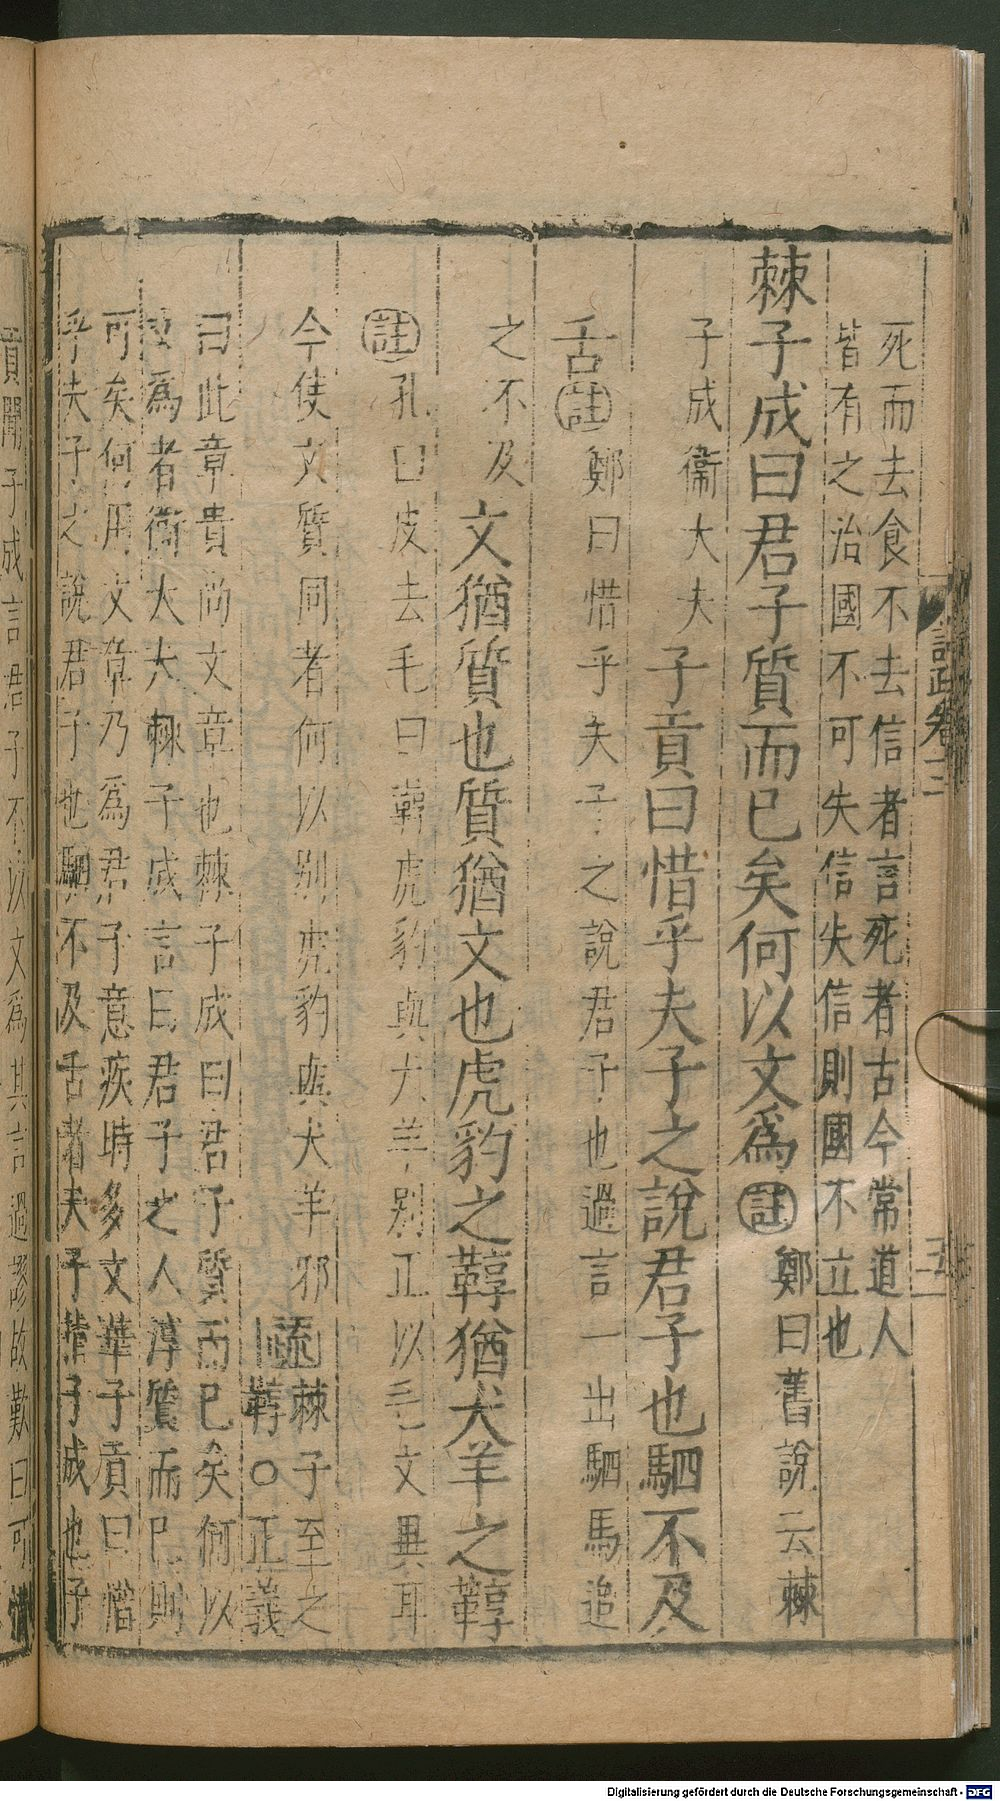 死而去食不去信者言死者古今常道人
皆有之治國不可失信失信則國不立也
棘子成曰君子質而已矣何以文爲註鄭曰舊說云棘
子成衞大夫子貢曰惜乎夫子之說君子也駟不及
舌註鄭曰惜乎夫子之說君子也過言一出駟馬追
之不及文猶質也質猶文也虎豹之鞟猶犬羊之鞟
註孔曰皮去毛曰鞟虎豹與犬羊別正以毛文異耳
今使文質同者何以別虎豹與犬羊邪疏棘子至之
鞟○正義
曰此章貴尚文章也棘子成曰君子質而已矣何以
文爲者衞大夫棘子成言曰君子之人淳質而已則
可矣何用文章乃爲君子意疾時多文華子貢曰惜
乎夫子之說君子也駟不及舌者夫子指子成也子
貢聞子成言君子不以文爲其言過謬故歎曰可惜
五
Digitalisierung gefördert durch die Deutsche Forschungsgemeinschaft - DFG